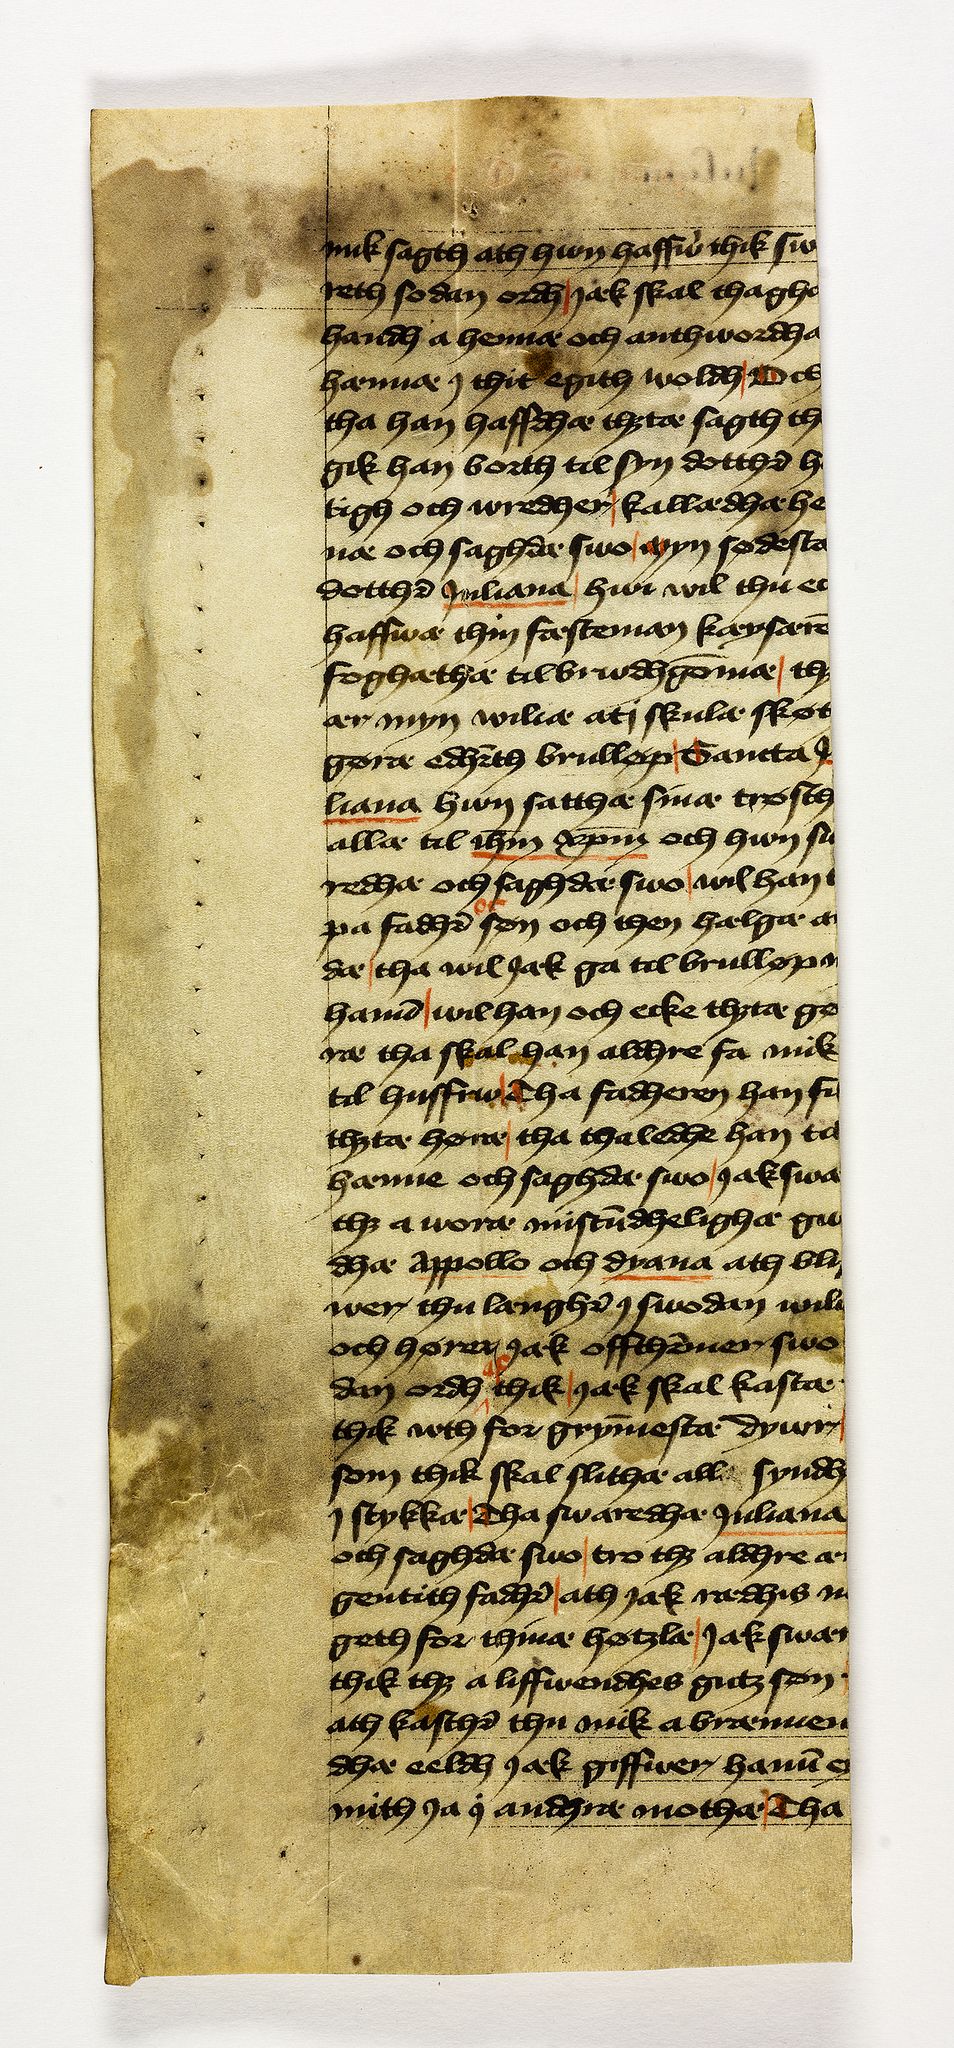 mik sagth ath hwn haffwer thik sw
reth sodan ordh | jak skal thagha
handh a hennæ och anthwordha
hænnæ j thit egith woldh | Och
tha han haffdhæ thztæ sagth th
gik han borth til syn dotther h
tigh och wredher | kallædhæ he
næ och saghdæ swo | myn sødesta
dotther Juliana | hwi wil thu ec
haffwæ thin fæsteman kæysarē
foghæthæ til brwdhgōmæ | thz
ær myn wiliæ ati skulæ skøt
gøræ edhrth brulløp | Sancta J
liana hwn satthæ sinæ trøsth
allæ til ihm xpm och hwn sw
redhæ och saghdæ swo | wil han t
pa fadher oc søn och then hælgæ a
dæ | tha wil jak ga til brulløp m
hanum | wil han och ecke thztæ gø
ræ tha skal han aldhre fa mik
til husfrw | Tha fadheren han fi
thztæ høræ | tha thaledhe han til
hænne och saghdæ swo | jak swæ
thz a woræ miscūdhelighæ gu
dhæ Appollo och dyana ath bli
wer thu længher j swodan wili
och hører jak offthermer swo
dan ordh aff thik | jak skal kastæ
thik wth for grymestæ dywr |
som thik skal slithæ all syndh
j stykkæ | Tha swaredhæ Juliana
och saghdæ swo | tro thz aldhre æ
gentith fadher | ath jak rædhis n
geth for thinæ høtzlæ | Jak swær
thik thz a liffwendhes gutz søn
ath kasther thu mik a brænnen
dhæ eeldh jak giffwer hanum e
mith ja j andhræ mothæ | Tha